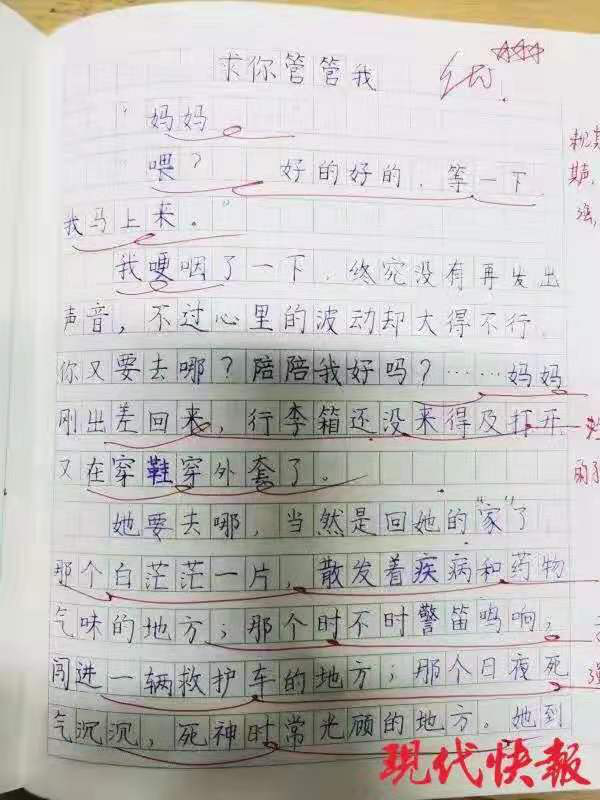 求你管管我
优！
“妈妈
喂？ 好的好的，等一下
我马上来。”
我哽咽了一下，终究没有再发出
声音，不过心里的波动却大得不行，
你又要去哪？陪陪我好吗？……妈妈
刚出差回来，行李箱还没来得及打开
又在穿鞋穿外套了。
她要去哪，当然是回她的“家”了
那个白茫茫一片，散发着疾病和药物
气味的地方；那个时不时警笛鸣响，
闯进一辆救护车的地方；那个日夜死
气沉沉，死神时常光顾的地方。她到
现代快報